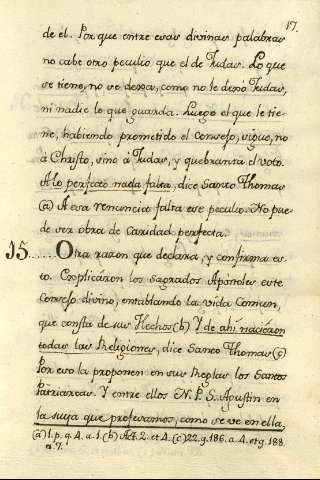 17.
de él. Porque entre esas divinas palabras
no cabe otro peculio que el de Judas. Lo que
se tiene, no se dexa, como no le dexó Judas,
ni nadie lo que guarda. Luego el que le tie-
ne, habiendo prometido el Consejo, sigue, no
à Christo, sino à Judas, y quebranta el voto.
A lo perfecto nada falta, dice Santo Thomas
(a) A esa renuncia falta ese peculio. No pue-
de ser obra de Caridad perfecta.
15......Otra razon que declara, y confirma es-
to. Explicáron los sagrados Apóstoles este
Consejo divino, entablando la vida Comun,
que consta de sus Hechos (b) Y de ahí nacieron
todas las Religiones, dice Santo Thomas (c)
Por eso la proponen en sus Reglas los Santos
Patriarcas. Y entre ellos N. P. S. Agustin en
la suya que profesamos, como se ve en ella.
(a) 1. p. q. 4. a. 1. (b) Act. 2. et 4. (c) 22. q. 186. a. 4. et q. 188.
a. 7.